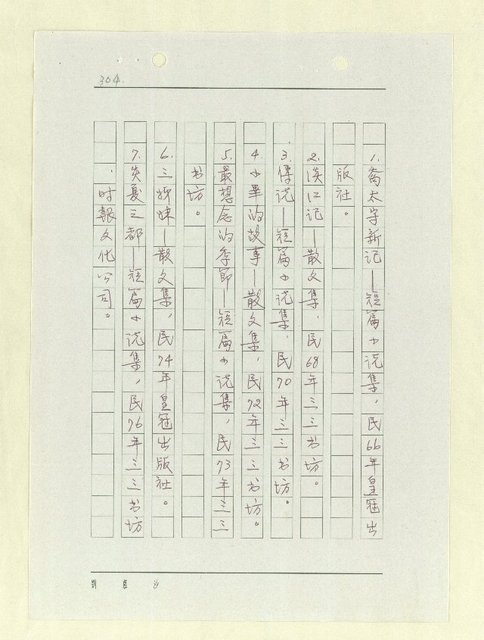 304.
1.喬太守新記—短篇小說集,民66年皇冠出
版社。
2.淡江記—散文集,民68年三三书坊。
3.傳說—短篇小说集,民70年三三书坊。
4小畢的故事—散文集,民72年三三书坊。
5.最想念的季節—短篇小说集,民73年三三
书坊。
6.三姊妹—散文集,民74年皇冠出版社。
7.炎夏之都—短篇小说集,民76年三三书坊
、时報文化公司。